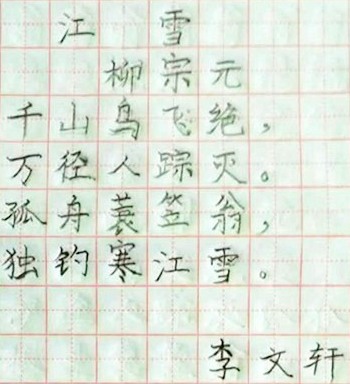 江雪
柳宗元
千山鸟飞绝，
万径人踪灭。
孤舟蓑笠翁，
独钓寒江雪。
李文轩